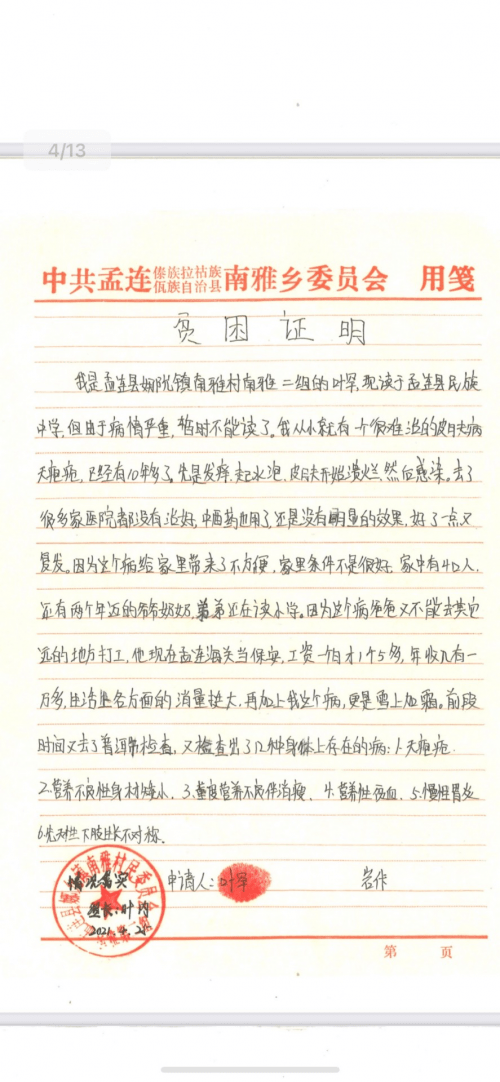 4/13
中共孟连傣族拉祜族佤族自治县南雅乡委员会 用笺
贫困证明
我是孟连县娜允镇南雅村南雅二组的叶罕,现读于孟连县民族
中学,但由于病情严重,暂时不能读了。我从小就有一个很难治的皮肤病
天疱疮,已经有10年多了。先是发痒,起水泡,皮肤开始溃烂,然后感染。去了
很多家医院都没有治好,中西药也用了,还是没有明显的效果,好了一点又
复发。因为这个病给家里带来了不方便,家里条件不是很好,家中有4口人,
还有两个年迈的爷爷奶奶,弟弟还在读小学。因为这个病爸爸又不能去其它
远的地方打工,他现在孟连海关当保安,工资一个月才1千5多,年收入有一
万多,生活上各方面的消量挺大,再加上我这个病,更是雪上加霜。前段
时间又去了普洱市检查,又检查出了几种身体上存在的病:1.天疱疮.
2.营养不良性身材矮小、3.重度营养不良伴消瘦、4.营养性贫血、5.慢性胃炎
6.先天性下肢长不对称.
情况属实 申请人:叶罕 岩作
组长:叶内
2021.4.25
第 页